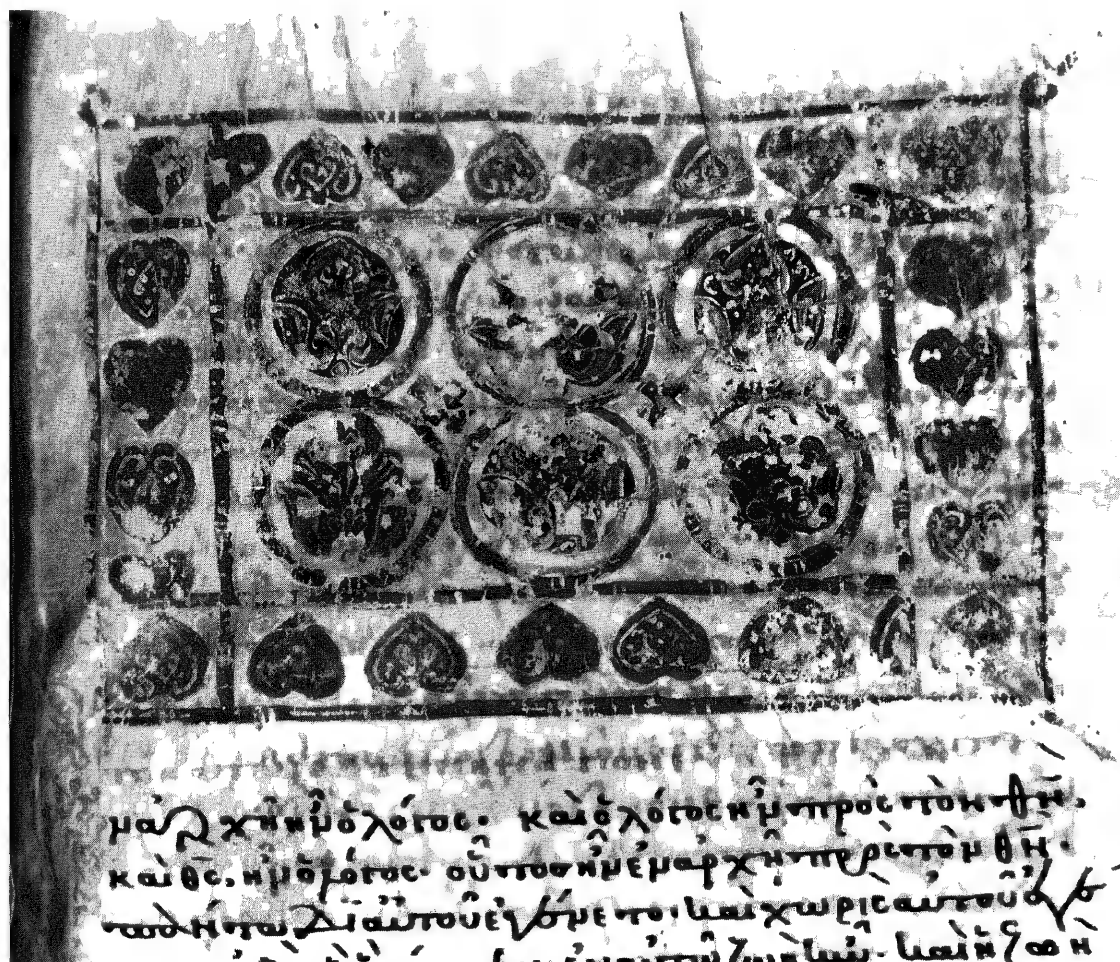 ν ἀρχῆ ἦν ὁ λόγος· καὶ ὁ λόγος ἦν πρὸς τὸν θν̄·
καὶ θς̄ ἦν ὁ λόγος· οὗτος ἦν ἐν ἀρχῆ πρὸς τὸν θν̄·
πάντα δι' αὐτοῦ ἐγένετο· καὶ χωρὶς αὐτοῦ ἐγέ
ἐν αὐτῶ ζωὴ ἦν· καὶ ἡ ζωὴ